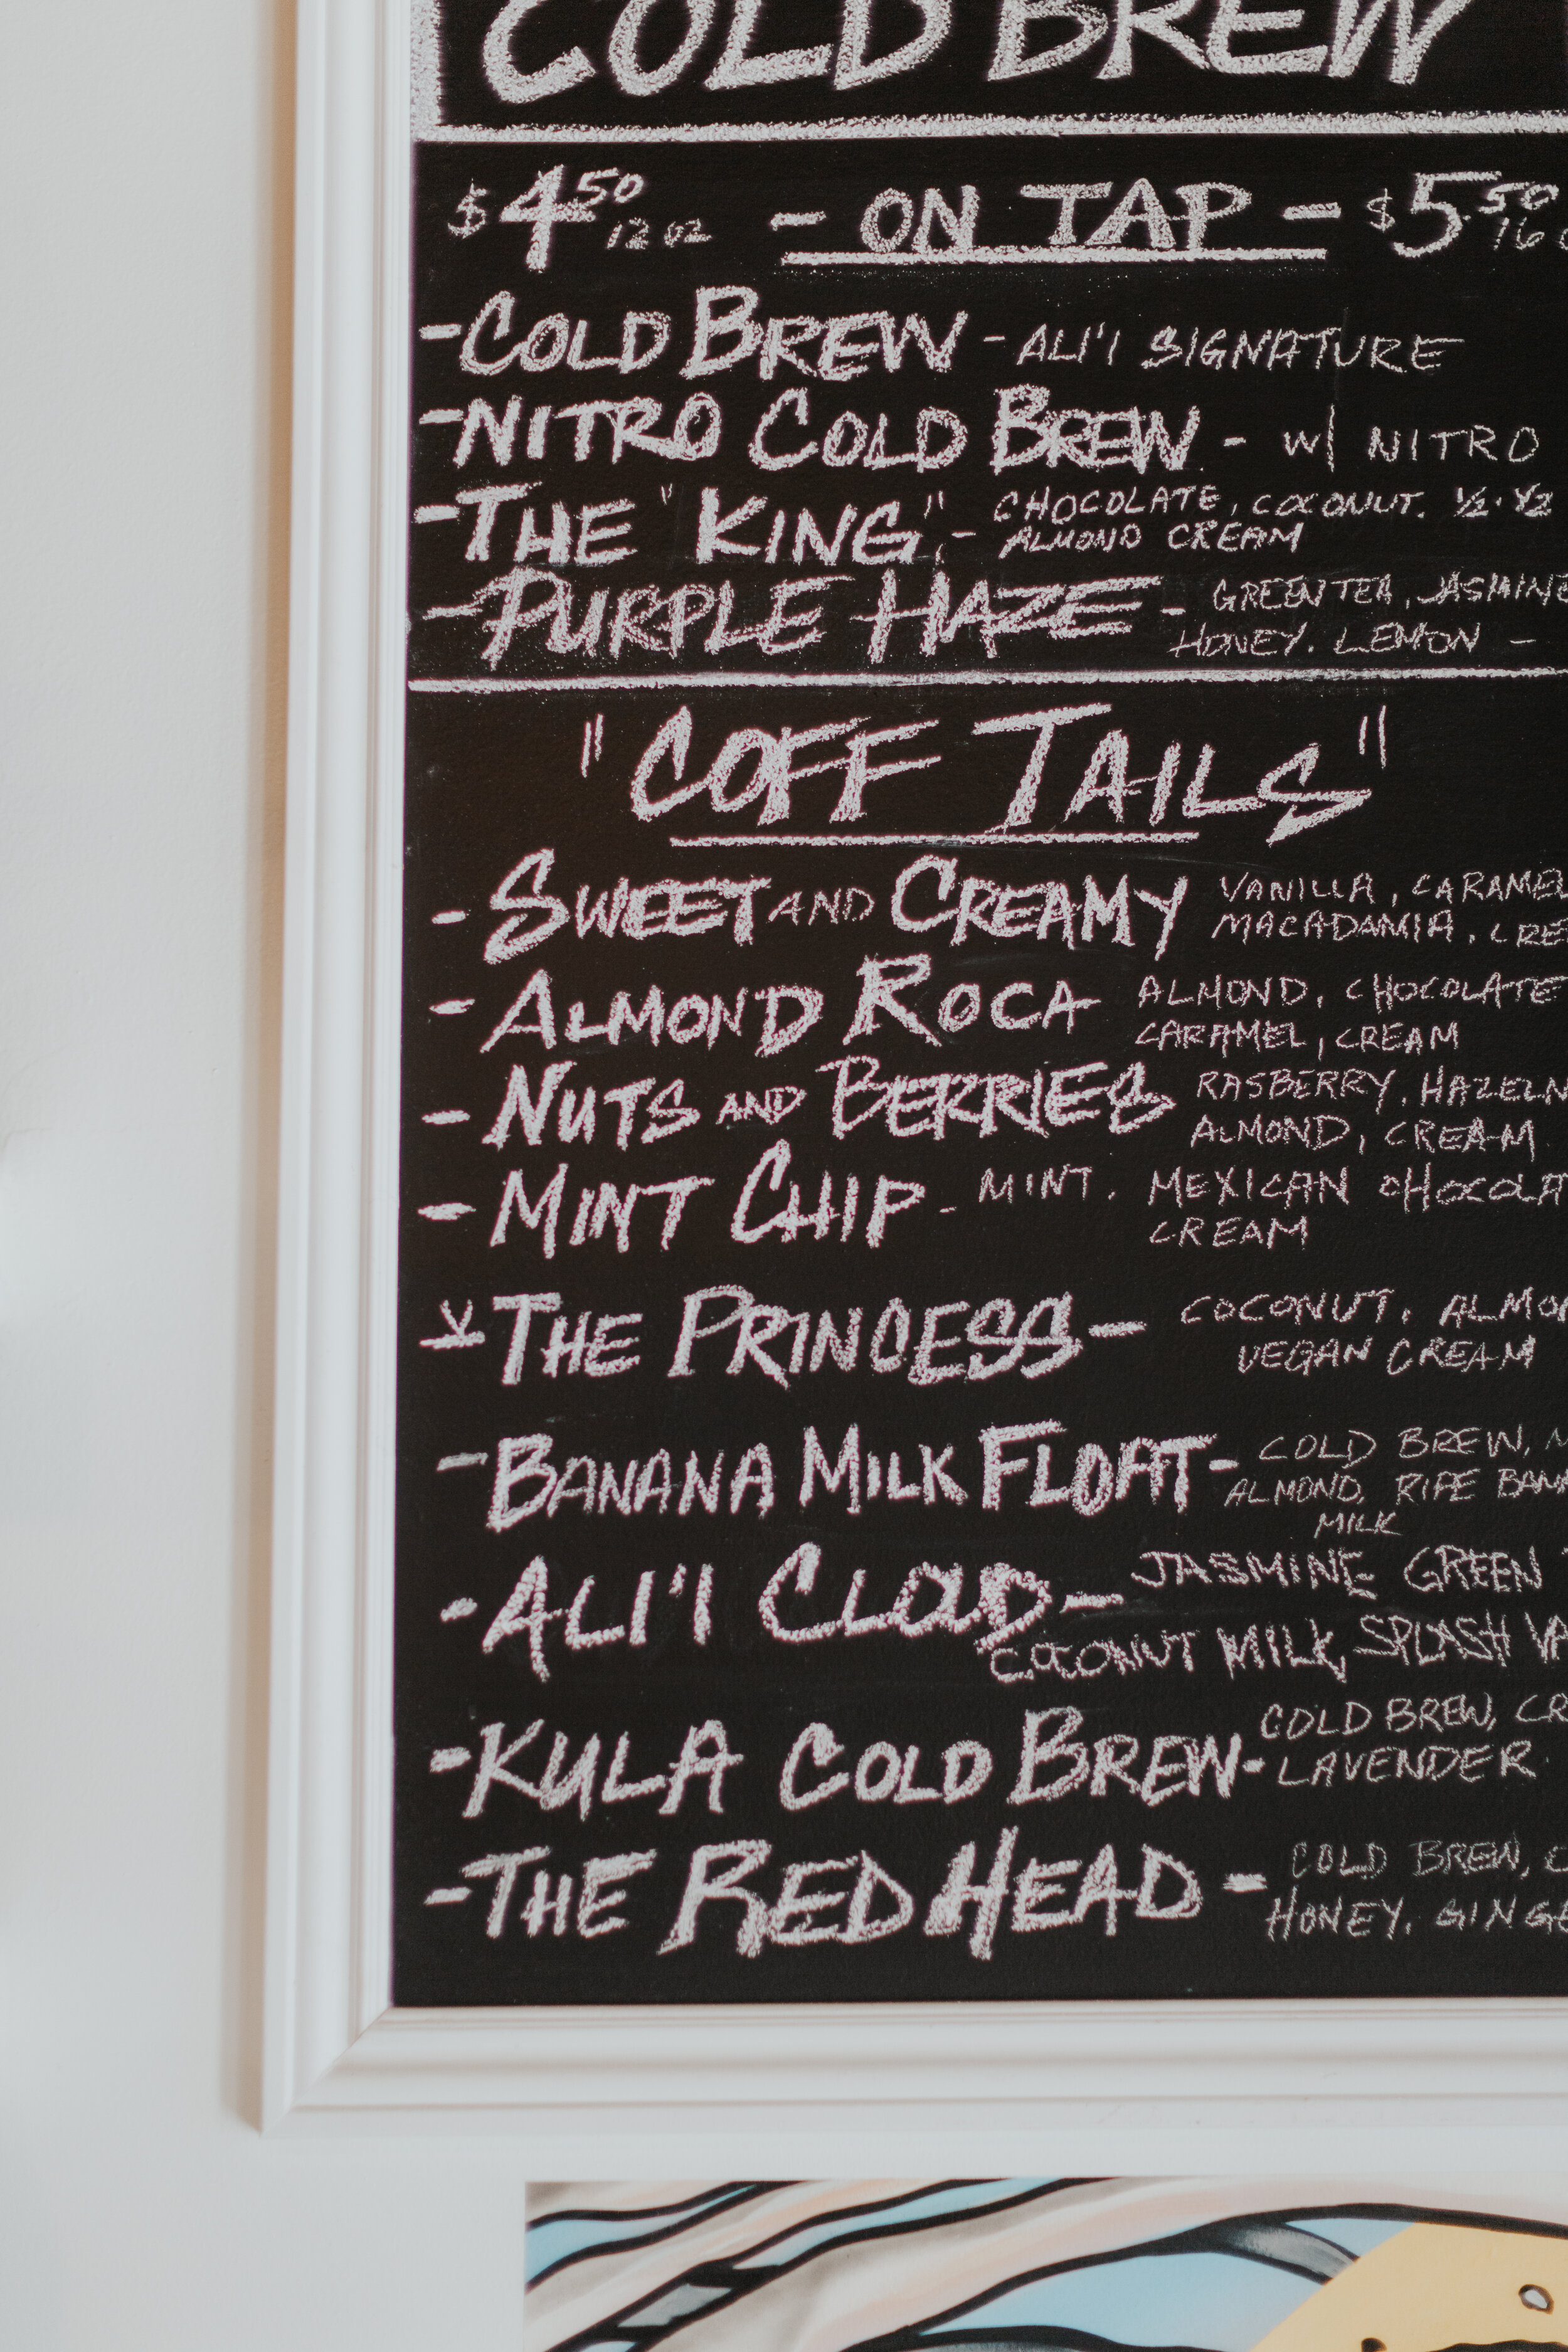 COLD BREW
$4.50 12 oz - ON TAP - $5.50 16
-COLD BREW - ALI'I SIGNATURE
-NITRO COLD BREW - W/ NITRO
-THE "KING" - CHOCOLATE, COCONUT. ½·½
ALMOND CREAM
-PURPLE HAZE - GREEN TEA, JASMINE
HONEY. LEMON -
"COFF TAILS"
- SWEET AND CREAMY VANILLA, CARAMEL
MACADAMIA, CRE
- ALMOND ROCA ALMOND, CHOCOLATE
CARAMEL, CREAM
- NUTS AND BERRIES RASBERRY, HAZELN
ALMOND, CREAM
- MINT CHIP - MINT. MEXICAN CHOCOLA
CREAM
THE PRINCESS - COCONUT. ALMO
VEGAN CREAM
-BANANA MILK FLOAT- COLD BREW, M
ALMOND, RIPE BANA
MILK
-ALI'I CLOUD- JASMINE GREEN T
COCONUT MILK, SPLASH VA
-KULA COLD BREW- COLD BREW, CR
LAVENDER
-THE RED HEAD - COLD BREW, C
HONEY. GINGE